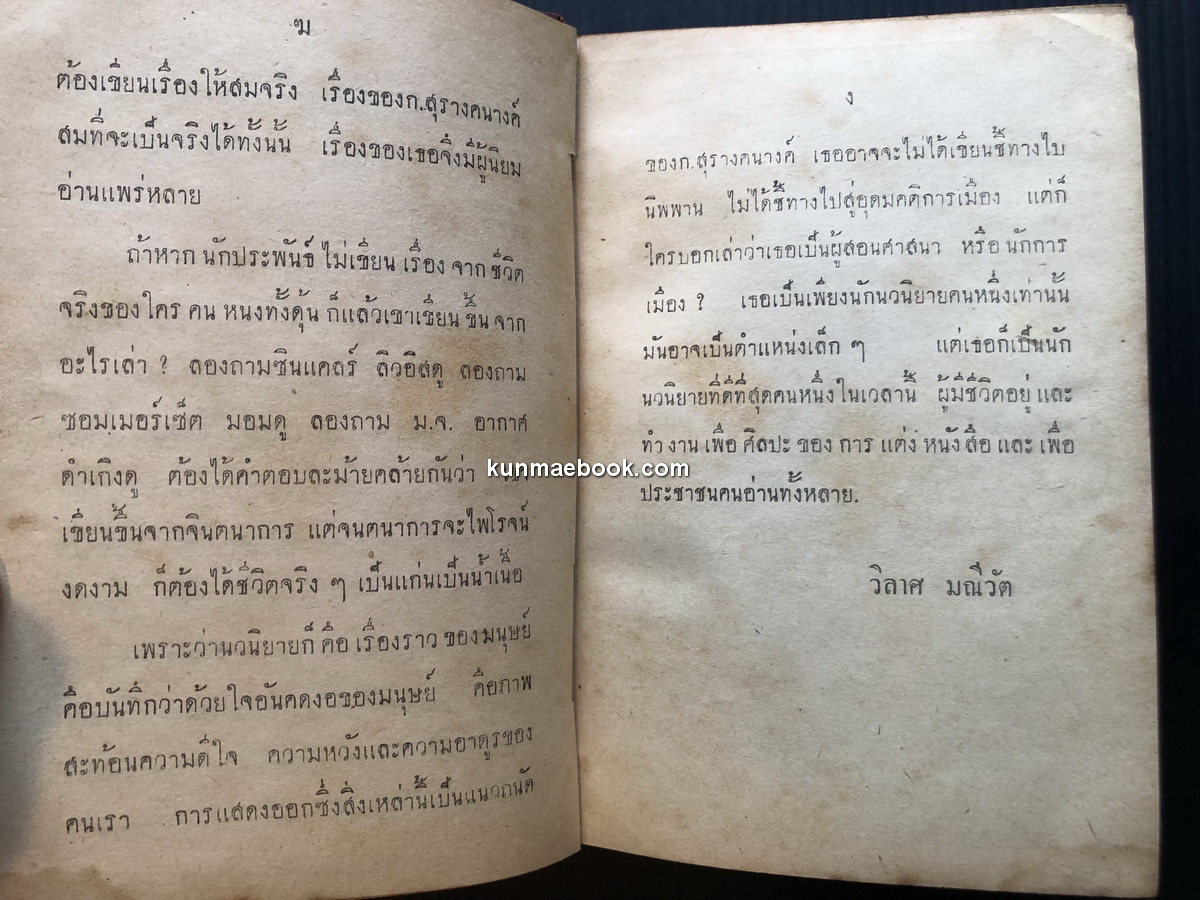 ฆ
ต้องเขียนเรื่องให้สมจริง เรื่องของก.สุรางคนางค์
สมที่จะเป็นจริงได้ทั้งนั้น เรื่องของเธอจึงมีผู้นิยม
อ่านแพร่หลาย
ถ้าหาก นักประพันธ์ ไม่เขียน เรื่อง จาก ชีวิต
จริงของใคร คน หนงทั้งดุ้น ก็แล้วเขาเขียน ขึ้น จาก
อะไรเล่า ? ลองถามซินแคลร์ ลิวอิสดู ลองถาม
ซอมเมอร์เซ็ต มอมดู ลองถาม ม.จ. อากาศ
ดำเกิงดู ต้องได้คำตอบละม้ายคล้ายกันว่า เขา
เขียนขึ้นจากจินตนาการ แต่จนตนาการจะไพโรจน์
งดงาม ก็ต้องได้ชีวิตจริง ๆ เป็นแก่นเป็นน้ำเนื้อ
เพราะว่านวนิยายก็ คือ เรื่องราว ของมนุษย์
คือบันทึกว่าด้วยใจอันคดงอของมนุษย์ คือภาพ
สะท้อนความดีใจ ความหวังและความอาดูรของ
คนเรา การแสดงออกซึ่งสิ่งเหล่านี้เป็นแนวถนัด
ง
ของก.สุรางคนางค์ เธออาจจะไม่ได้เขียนชี้ทางไป
นิพพาน ไม่ได้ชี้ทางไปสู่อุดมคติการเมือง แต่ก็
ใครบอกเล่าว่าเธอเป็นผู้สอนศาสนา หรือ นักการ
เมือง ? เธอเป็นเพียงนักนวนิยายคนหนึ่งเท่านั้น
มันอาจเป็นตำแหน่งเล็ก ๆ แต่เธอก็เป็นนัก
นวนิยายที่ดีที่สุดคนหนึ่งในเวลานี้ ผู้มีชีวิตอยู่ และ
ทำ งาน เพื่อ ศิลปะ ของ การ แต่ง หนัง สือ และ เพื่อ
ประชาชนคนอ่านทั้งหลาย.
วิลาศ มณีวัต
kunmaebook.com